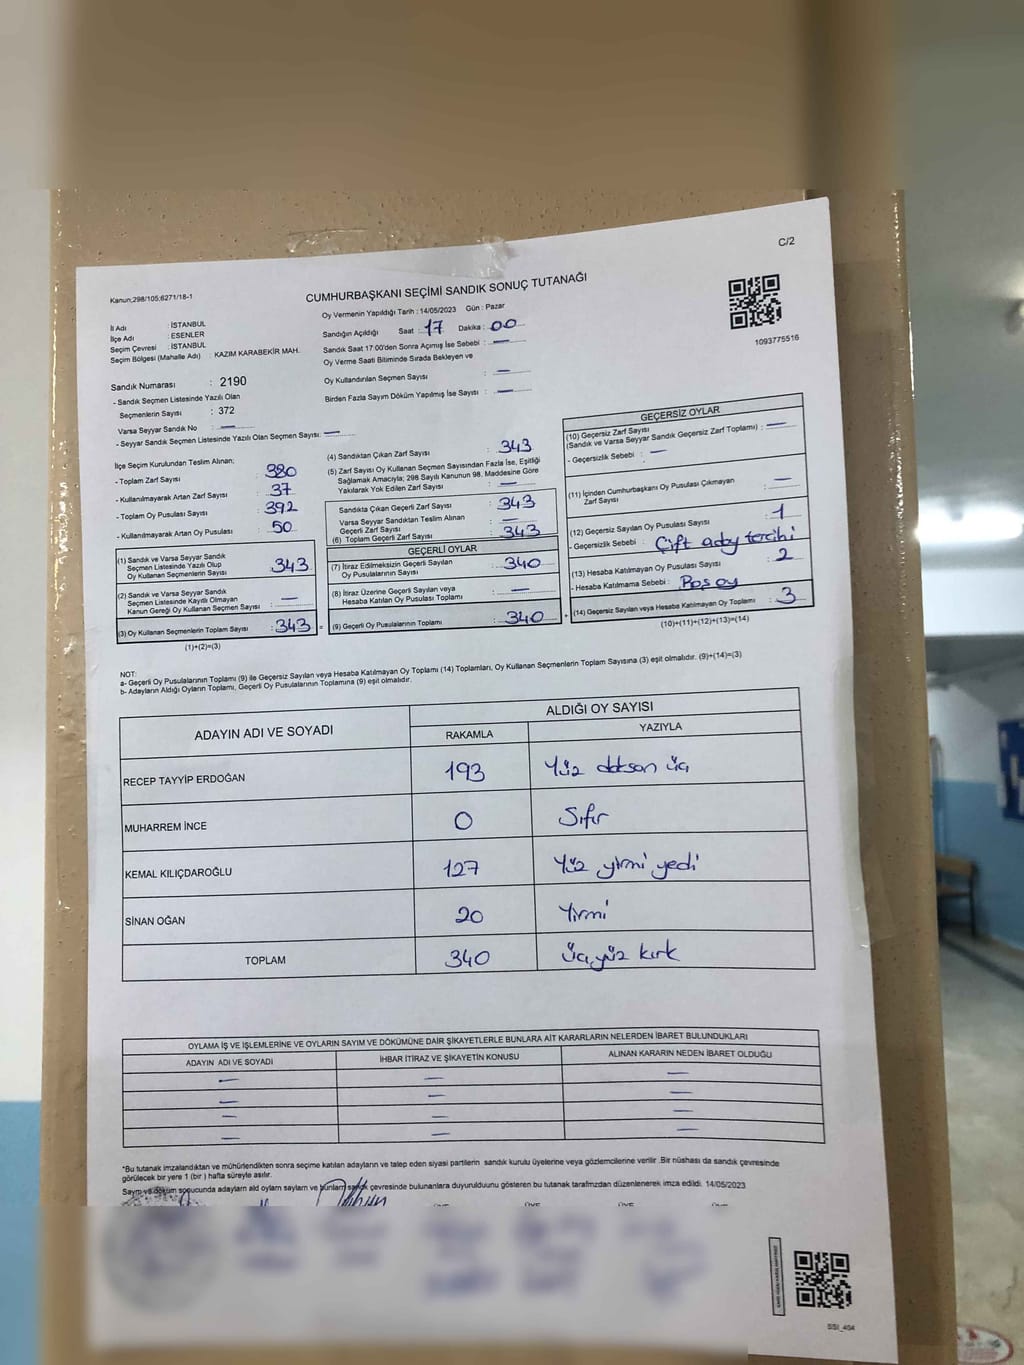 C/2
Kanun,298/105;6271/18-1
CUMHURBAŞKANI SEÇİMİ SANDIK SONUÇ TUTANAĞI
Oy Vermenin Yapıldığı Tarih : 14/05/2023 Gün : Pazar
İl Adı : İSTANBUL
İlçe Adı : ESENLER
Seçim Çevresi : İSTANBUL
Seçim Bölgesi (Mahalle Adı) : KAZIM KARABEKİR MAH.
Sandığın Açıldığı Saat : 17 Dakika : 00
Sandık Saat 17:00'den Sonra Açmış İse Sebebi : —
Oy Verme Saati Bitiminde Sırada Bekleyen ve
Oy Kullandırılan Seçmen Sayısı : —
Birden Fazla Sayım Döküm Yapılmış İse Sayısı : —
1093775516
Sandık Numarası : 2190
- Sandık Seçmen Listesinde Yazılı Olan
Seçmenlerin Sayısı : 372
Varsa Seyyar Sandık No : —
- Seyyar Sandık Seçmen Listesinde Yazılı Olan Seçmen Sayısı: —
İlçe Seçim Kurulundan Teslim Alınan;
- Toplam Zarf Sayısı : 380
- Kullanılmayarak Artan Zarf Sayısı : 37
- Toplam Oy Pusulası Sayısı : 392
- Kullanılmayarak Artan Oy Pusulası : 50
(1) Sandık ve Varsa Seyyar Sandık
Seçmen Listesinde Yazılı Olup
Oy Kullanan Seçmenlerin Sayısı : 343
(2) Sandık ve Varsa Seyyar Sandık
Seçmen Listesinde Kayıtlı Olmayan
Kanun Gereği Oy Kullanan Seçmen Sayısı : —
(3) Oy Kullanan Seçmenlerin Toplam Sayısı : 343
(1)+(2)=(3)
(4) Sandıktan Çıkan Zarf Sayısı : 343
(5) Zarf Sayısı Oy Kullanan Seçmen Sayısından Fazla İse, Eşitliği
Sağlamak Amacıyla; 298 Sayılı Kanunun 98. Maddesine Göre
Yakılarak Yok Edilen Zarf Sayısı : —
Sandıkta Çıkan Geçerli Zarf Sayısı : 343
Varsa Seyyar Sandıktan Teslim Alınan
Geçerli Zarf Sayısı : —
(6) Toplam Geçerli Zarf Sayısı : 343
GEÇERLİ OYLAR
(7) İtiraz Edilmeksizin Geçerli Sayılan
Oy Pusulalarının Sayısı : 340
(8) İtiraz Üzerine Geçerli Sayılan veya
Hesaba Katılan Oy Pusulası Toplamı : —
(9) Geçerli Oy Pusulalarının Toplamı : 340
GEÇERSİZ OYLAR
(10) Geçersiz Zarf Sayısı
(Sandık ve Varsa Seyyar Sandık Geçersiz Zarf Toplamı) : —
- Geçersizlik Sebebi : —
(11) İçinden Cumhurbaşkanı Oy Pusulası Çıkmayan
Zarf Sayısı : —
(12) Geçersiz Sayılan Oy Pusulası Sayısı : 1
- Geçersizlik Sebebi : Çift aday tercihi
(13) Hesaba Katılmayan Oy Pusulası Sayısı : 2
- Hesaba Katılmama Sebebi : Boş oy
(14) Geçersiz Sayılan veya Hesaba Katılmayan Oy Toplamı : 3
(10)+(11)+(12)+(13)=(14)
NOT:
a- Geçerli Oy Pusulalarının Toplamı (9) ile Geçersiz Sayılan veya Hesaba Katılmayan Oy Toplamı (14) Toplamları, Oy Kullanan Seçmenlerin Toplam Sayısına (3) eşit olmalıdır. (9)+(14)=(3)
b- Adayların Aldığı Oyların Toplamı, Geçerli Oy Pusulalarının Toplamına (9) eşit olmalıdır.
ADAYIN ADI VE SOYADI ALDIĞI OY SAYISI
RAKAMLA YAZIYLA
RECEP TAYYİP ERDOĞAN 193 Yüz doksan üç
MUHARREM İNCE 0 Sıfır
KEMAL KILIÇDAROĞLU 127 Yüz yirmi yedi
SİNAN OĞAN 20 Yirmi
TOPLAM 340 Üç yüz kırk
OYLAMA İŞ VE İŞLEMLERİNE VE OYLARIN SAYIM VE DÖKÜMÜNE DAİR ŞİKAYETLERLE BUNLARA AİT KARARLARIN NELERDEN İBARET BULUNDUKLARI
ADAYIN ADI VE SOYADI İHBAR İTİRAZ VE ŞİKAYETİN KONUSU ALINAN KARARIN NEDEN İBARET OLDUĞU
— — —
— — —
— — —
— — —
*Bu tutanak imzalandıktan ve mühürlendikten sonra seçime katılan adayların ve talep eden siyasi partilerin sandık kurulu üyelerine veya gözlemcilerine verilir .Bir nüshası da sandık çevresinde
görülecek bir yere 1 (bir ) hafta süreyle asılır.
Sayım ve döküm sonucunda adayların aldı oyların sayıları ve bunların sandık çevresinde bulunanlara duyurulduunu gösteren bu tutanak tarafımzdan düzenlenerek imza edildi. 14/05/2023
ÜYE ÜYE ÜYE ÜYE
SSI_404